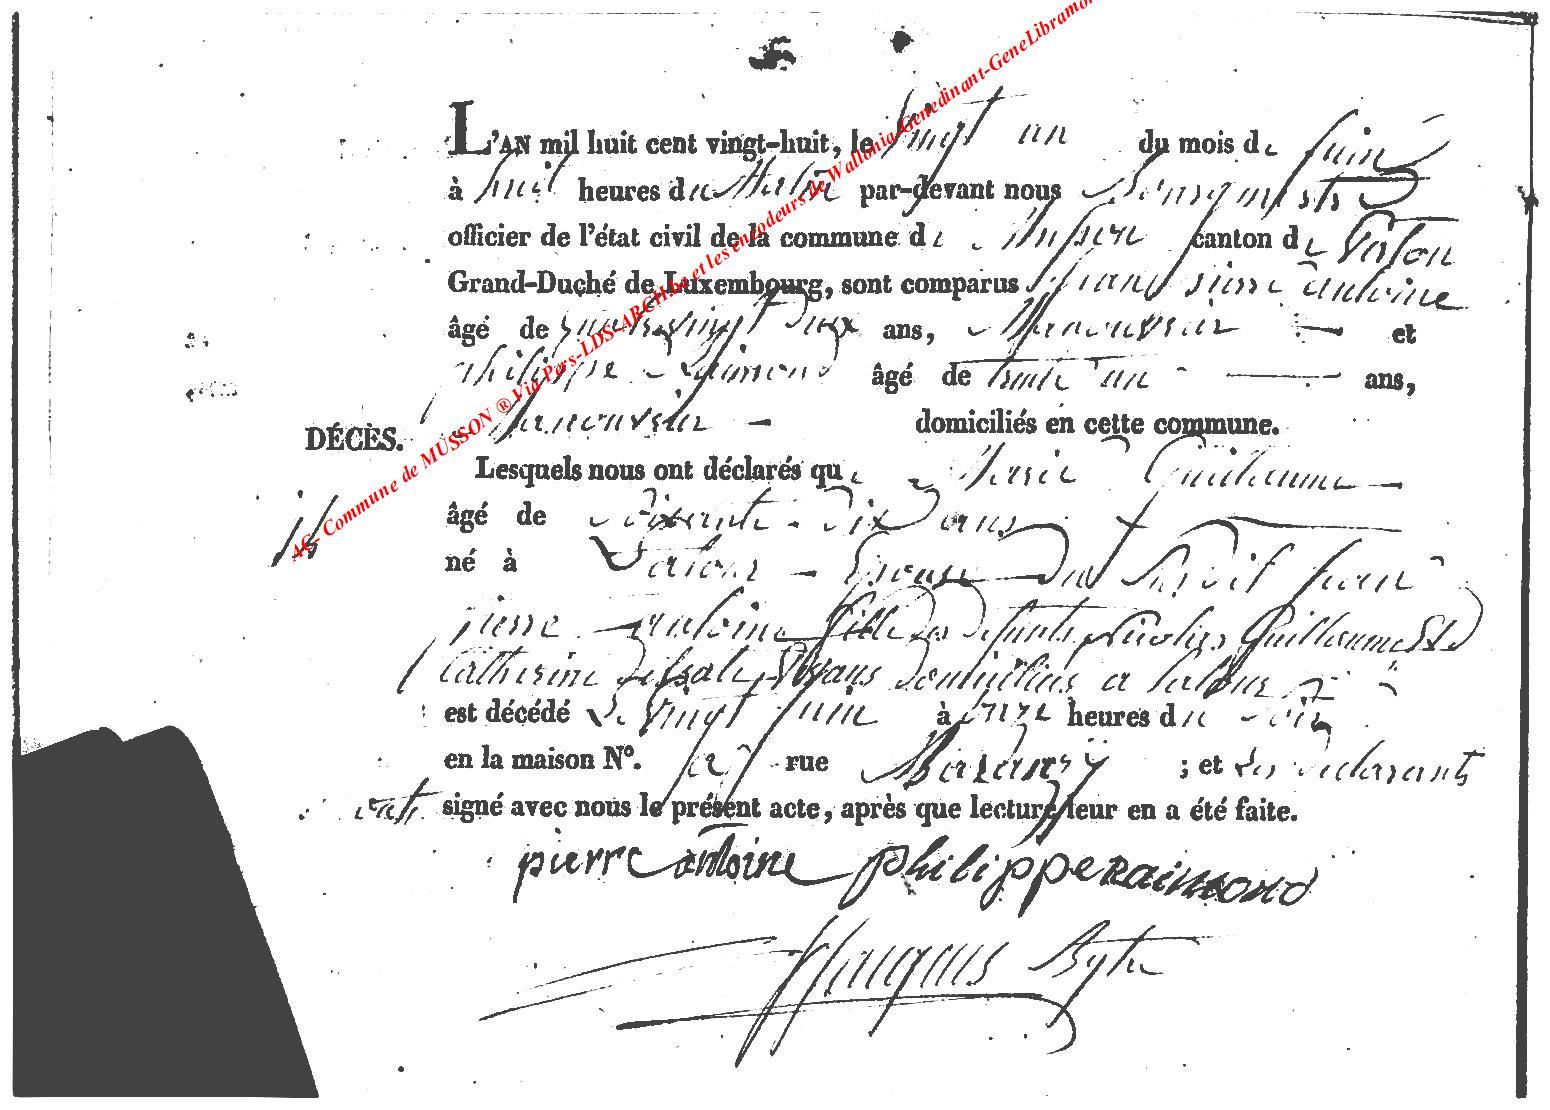 L'AN mil huit cent vingt-huit, le vingt un du mois de Juin
à huit heures du Matin par-devant nous Bourgmestre
officier de l'état civil de la commune de Musson canton de Virton
Grand-Duché de Luxembourg, sont comparus Jean pierre antoine
âgé de quatrevingt deux ans, Manouvrier et
philippe Raimond âgé de trente un ans,
Manouvrier domiciliés en cette commune.
DÉCÈS.
Lesquels nous ont déclarés que Marie Guillaume
âgé de Soixante Dix ans
né à Latour Epouse Du Susdit Jean
pierre antoine fille des defunts Nicolas Guillaume Et de
Catherine vivans Domicilies a latour
est décédé le Vingt Juin à onze heures du Soir
en la maison N°. rue Baranzy ; et les declarants
ont signé avec nous le présent acte, après que lecture leur en a été faite.
pierre antoine philippe Raimond
AC- Commune de MUSSON ® Via Pers-LDS-ARCH.be et les encodeurs de Wallonia-Genedinant-GeneLibramo